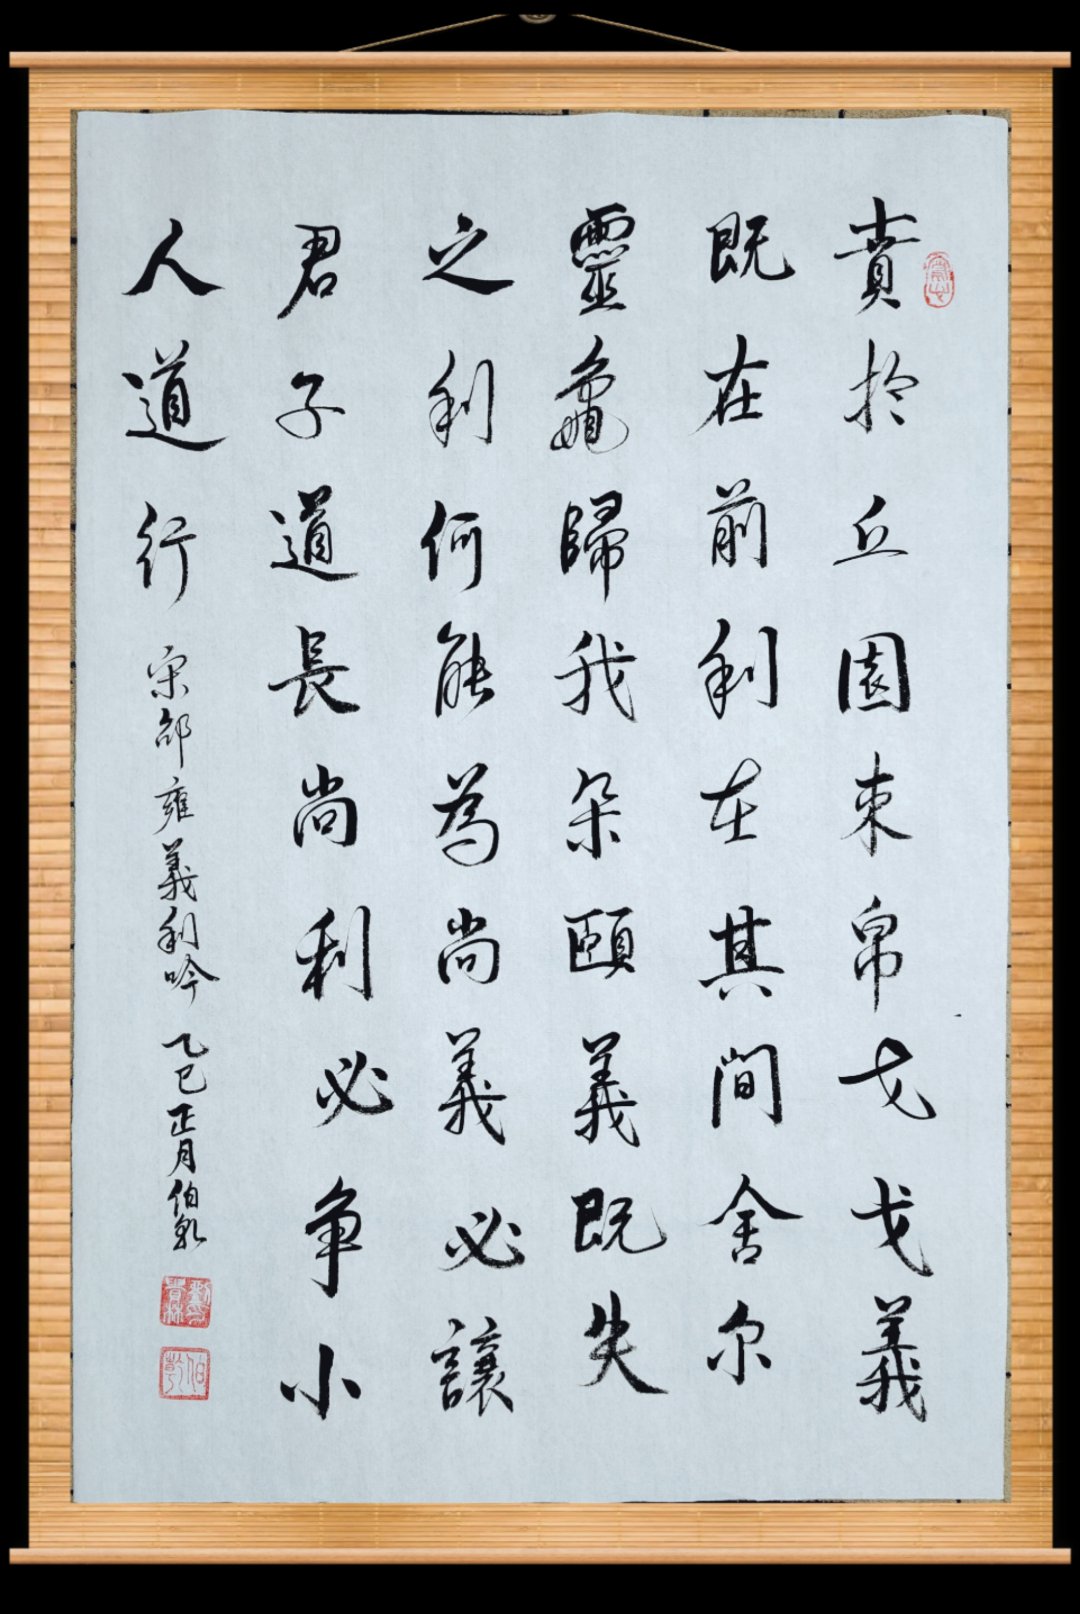 賁於丘園束帛戈戈義
既在前利在其間舍尔
靈龜歸我朵頤義既失
之利何能為尚義必讓
君子道長尚利必争小
人道行
宋邵雍義利吟 乙巳正月伯乾
伯乾